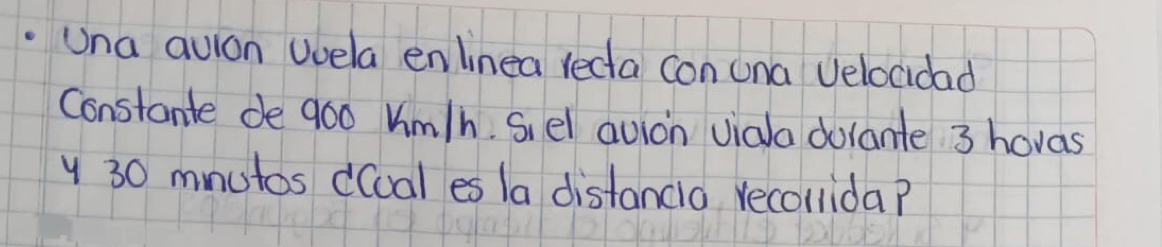 • Una avion vuela en linea recta con una velocidad
Constante de 900 Km/h. Si el avión viala durante 3 horas
y 30 mnutos ¿Cual es la distancia recorrida?